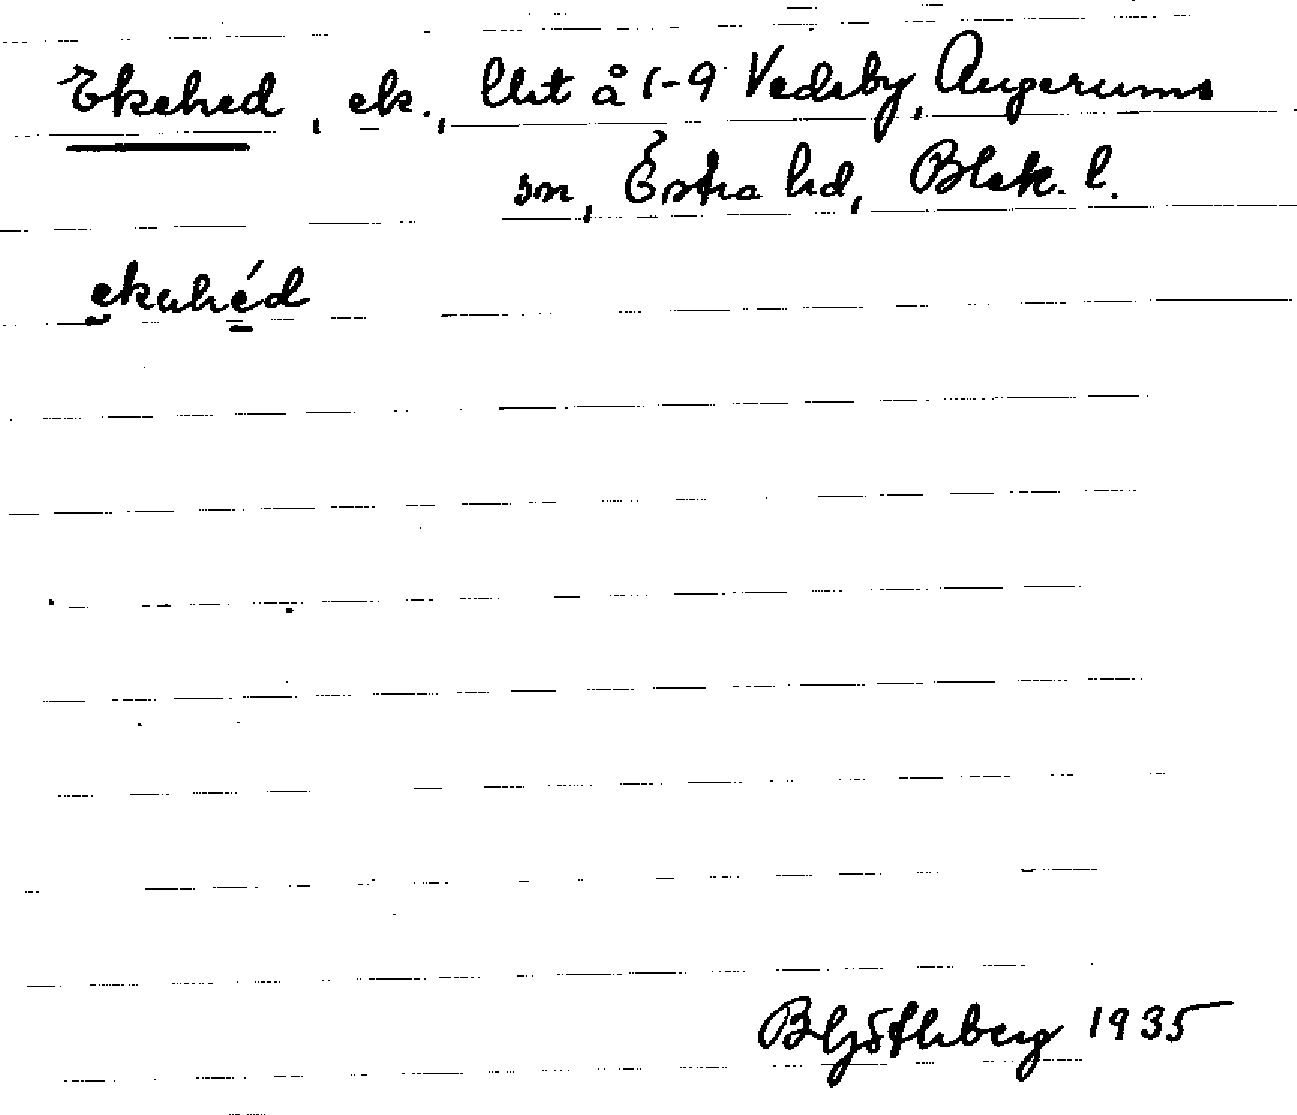 Ekehed, ek., Utst å 1-9 Vedeby, Augerums
sn, Östra hd, Blek. l.
ekahéd
B Götlhberg 1935